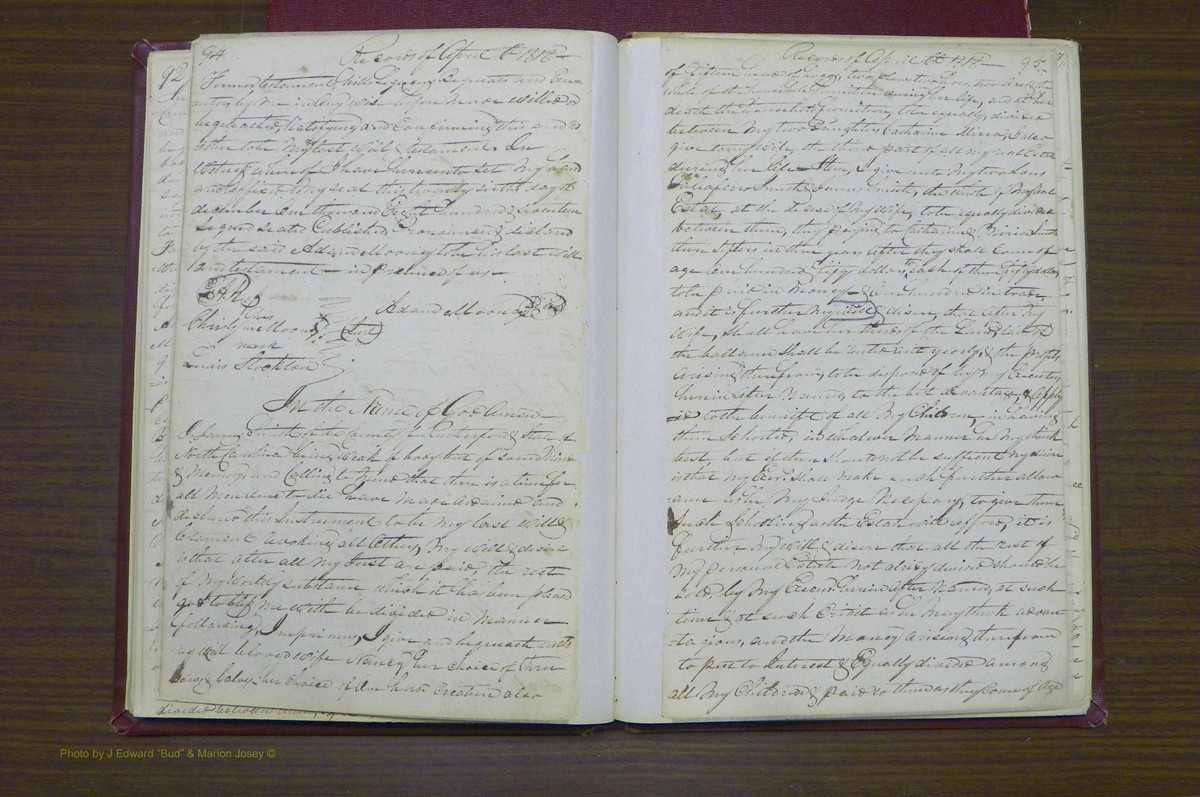 94
Records of April Ct 1818
Former testaments Wills Legacies Bequests and Exe-
cutors by me in any wise before made Willed or
bequeathed, Ratifying and Confirming this and no
other to be My last Will & testament. In
Witness where of I have hereunto set My hand
and affixed My seal this twenty sixth day of
december One thousand Eight hundred & seventeen
Signed Seald Published Pronounced & declared
by the said Adam Mooney to be his last Will
and testament in Presence of us
Adam Mooney Seal
her
Christyane Mooney
mark
Davis Stockton
In the Name of God Amen
I James Smith of the County of Rutherford & State of
North Carolina being Weak of body but of Sound Mind
& Memory and Calling to Mind that there is a time for
all Men Once to die have Made Ordained and
declared this instrument to be My last Will &
testament Revoking all Others, My Will & desire
is that after all My Just are paid, the rest
of My Worldly Substance which it has been pleased
god to bless Me with be divided in Manner
following, Imprimus, I give and bequeath unto
My well beloved wife Nancy her choice of three
Cows & Calves her Choice of One horse Creature also
divided between
92
Records of April Ct 1818
95
of fifteen head of hogs, two
whole of the household furniture during her life, and at her
death the household furniture, to be equally divided
between My two Daughters Catharine & I also
give to my Wife, the third part of all My real Estate
during her life Item, I give unto My two Sons
Smith & James Smith, the whole of My real
Estate, at the decease of My Wife, to be equally divided
between them, they paying to Catharine &
their Sisters in three years after they shall Come of
age One hundred & fifty dollars each to them fifty dollars
to be paid in Money & One hundred in trade,
and it is further My Will & desire, that after My
Wife, Shall have her third of the Land, laid off
the ballance Shall be rented out yearly, & the profits
Arising therefrom, to be disposed of by My Executors
herein after Named, to the best advantage, & Appli-
ed to the benefit of all My Children, in having
them Schooled, in Whatever Manner he May think
best but if there Should not be sufficient My desire
is that My Exors Shall Make such further allow-
ance as he May Judge Necessary, to give them
Such Schooling as the Estate will afford, it is
further My Will & desire that all the rest of
My personal Estate Not already divised should be
sold, by My Exors herein after Named, at such
time & at such Credit as he May think advan-
tagious, and the Money arising therefrom
to put to Interest & Equally divided among
all My Children & paid to them as they Come of age
Photo by J Edward "Bud" & Marion Josey ©